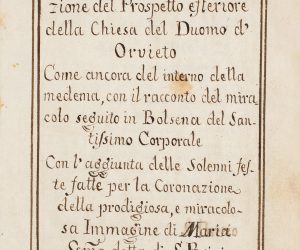 zione del Prospetto esteriore
della Chiesa del Duomo d'
Orvieto
Come ancora del interno della
medema, con il racconto del mira
colo seguito in Bolsena del San
tissimo Corporale
Con l'aggiunta delle Solenni fes
te fatte per la Coronazione
della prodigiosa, e miracolo
sa Immagine di Maria
detta di S.